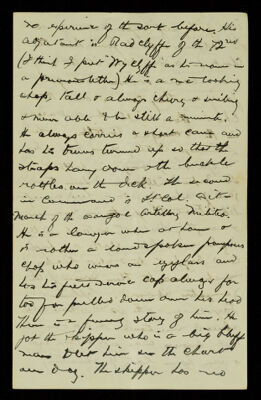 no experience of the sort before. His
adjutant is Radclyffe of the 72nd
(I think I put Wycliff as his name in
a previous letter) He is a nice looking
chap, tall & always cheery & smiling
& never able to be still a minute.
He always carries a short cane and
has his trews turned up so that the
straps hang down & the buckle
rattles on the deck. The second
in command is Lt Col.
of the Artillery Militia.
He is a lawyer when at home &
is rather a loud spoken pompous
chap who wears an eyeglass and
has his field service cap always far
too far pulled down over his head
There is a funny story of him. He
got the skipper who is a big bluff
man to let him see the chart
one day. The skipper has no